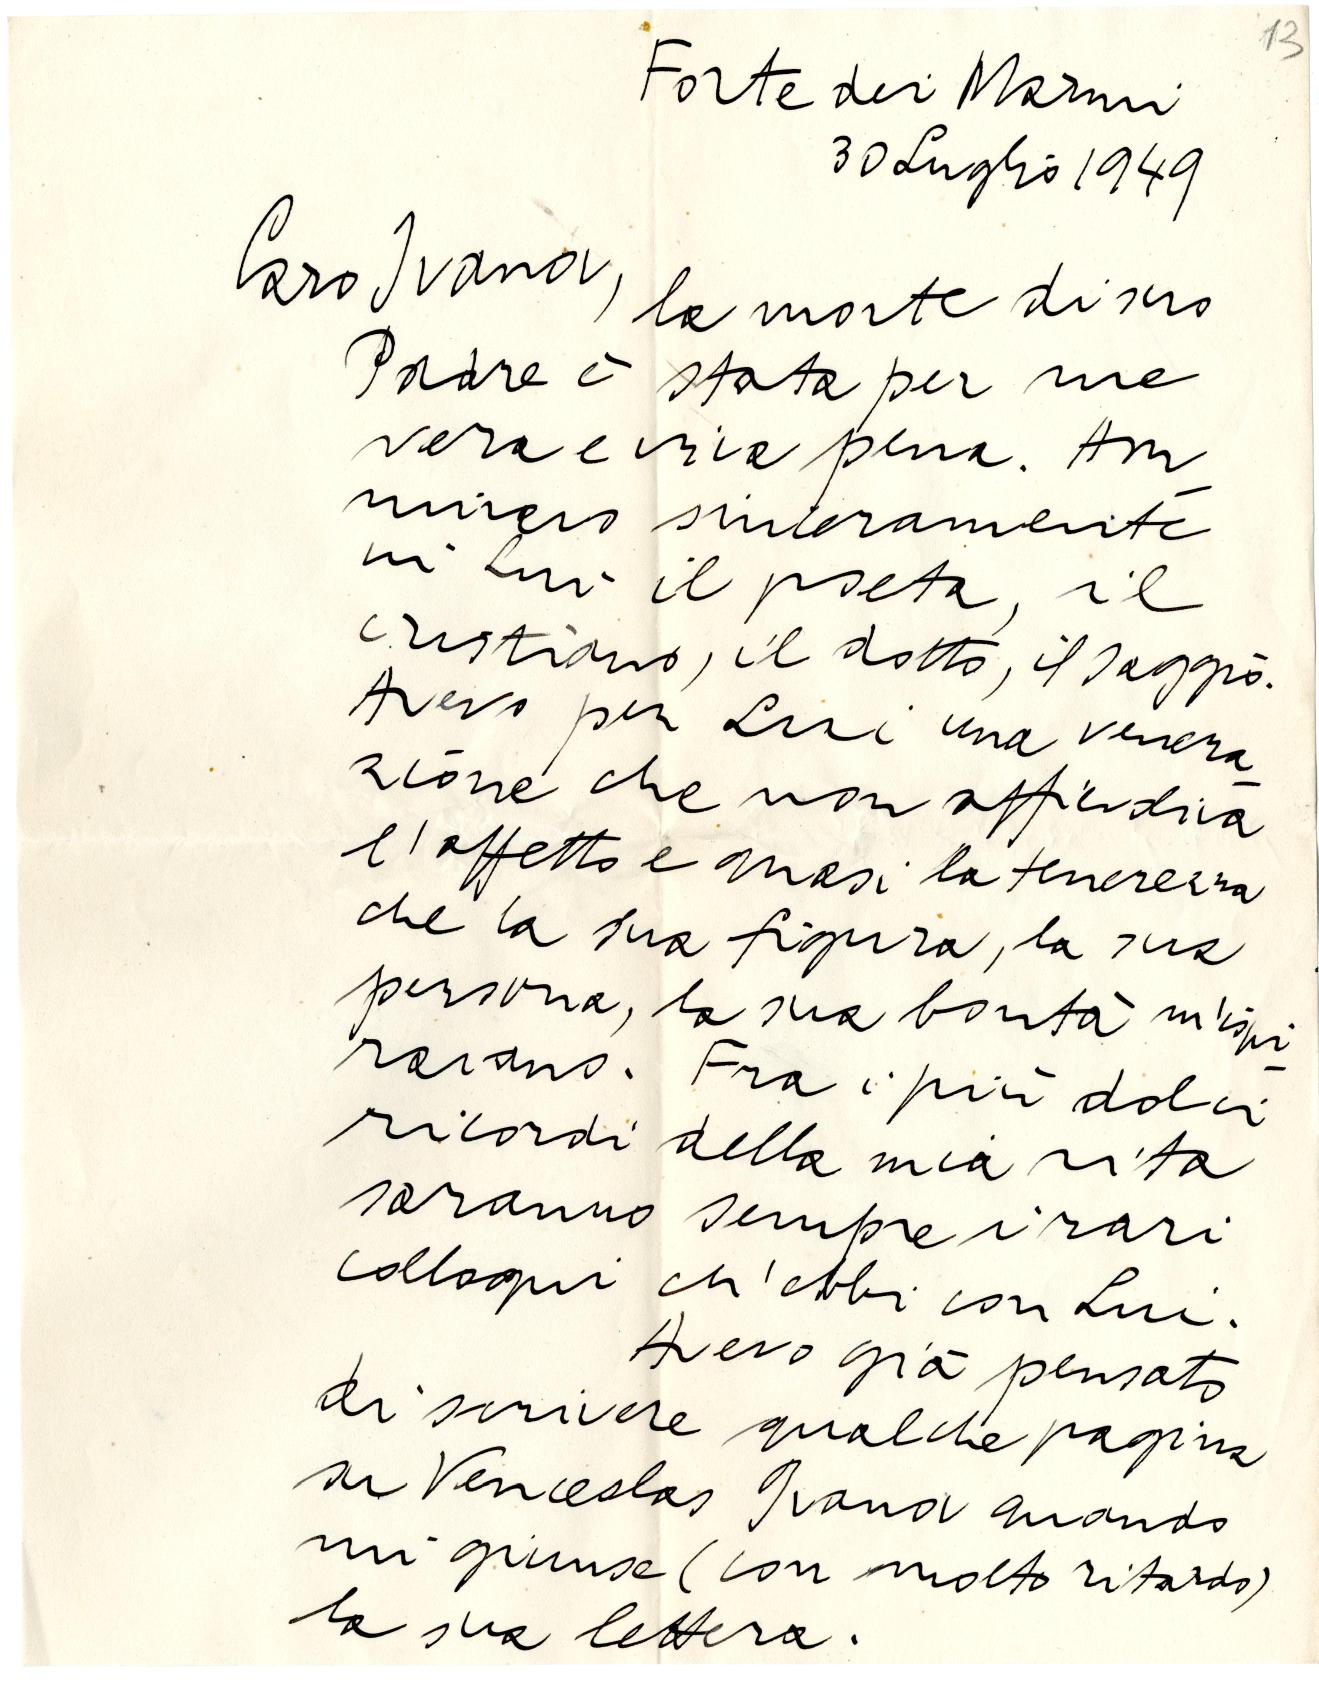 13
Forte dei Marmi
30 Luglio 1949
Caro Ivanov,
la morte di suo
Padre è stata per me
vera e viva pena. Am-
miravo sinceramente
in Lui il poeta, il
cristiano, il dotto, il saggio.
Avevo per Lui una venera-
zione che non affievoliva
l'affetto e quasi la tenerezza
che la sua figura, la sua
persona, la sua bontà m'ispi-
ravano. Fra i più dolci
ricordi della mia vita
saranno sempre i rari
colloqui ch'ebbi con Lui.
Avevo già pensato
di scrivere qualche pagina
su Venceslas Ivanov quando
mi giunse (con molto ritardo)
la sua lettera.